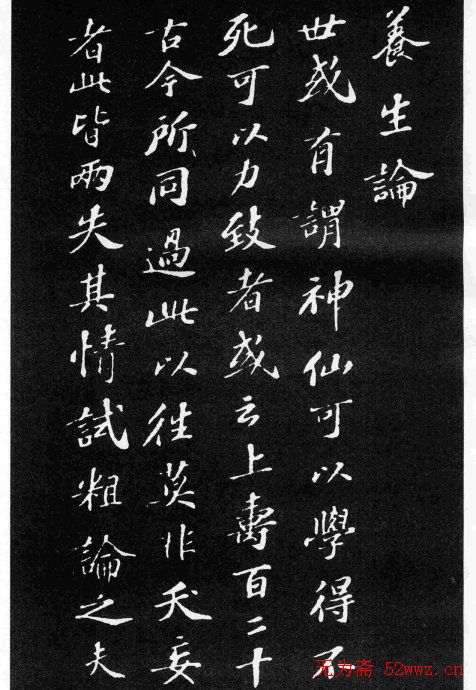 養生論
世或有謂神仙可以學得不
死可以力致者或云上壽百二十
古今所同過此以往莫非夭妄
者此皆兩失其情試粗論之夫
无为斋 52wwz.cn